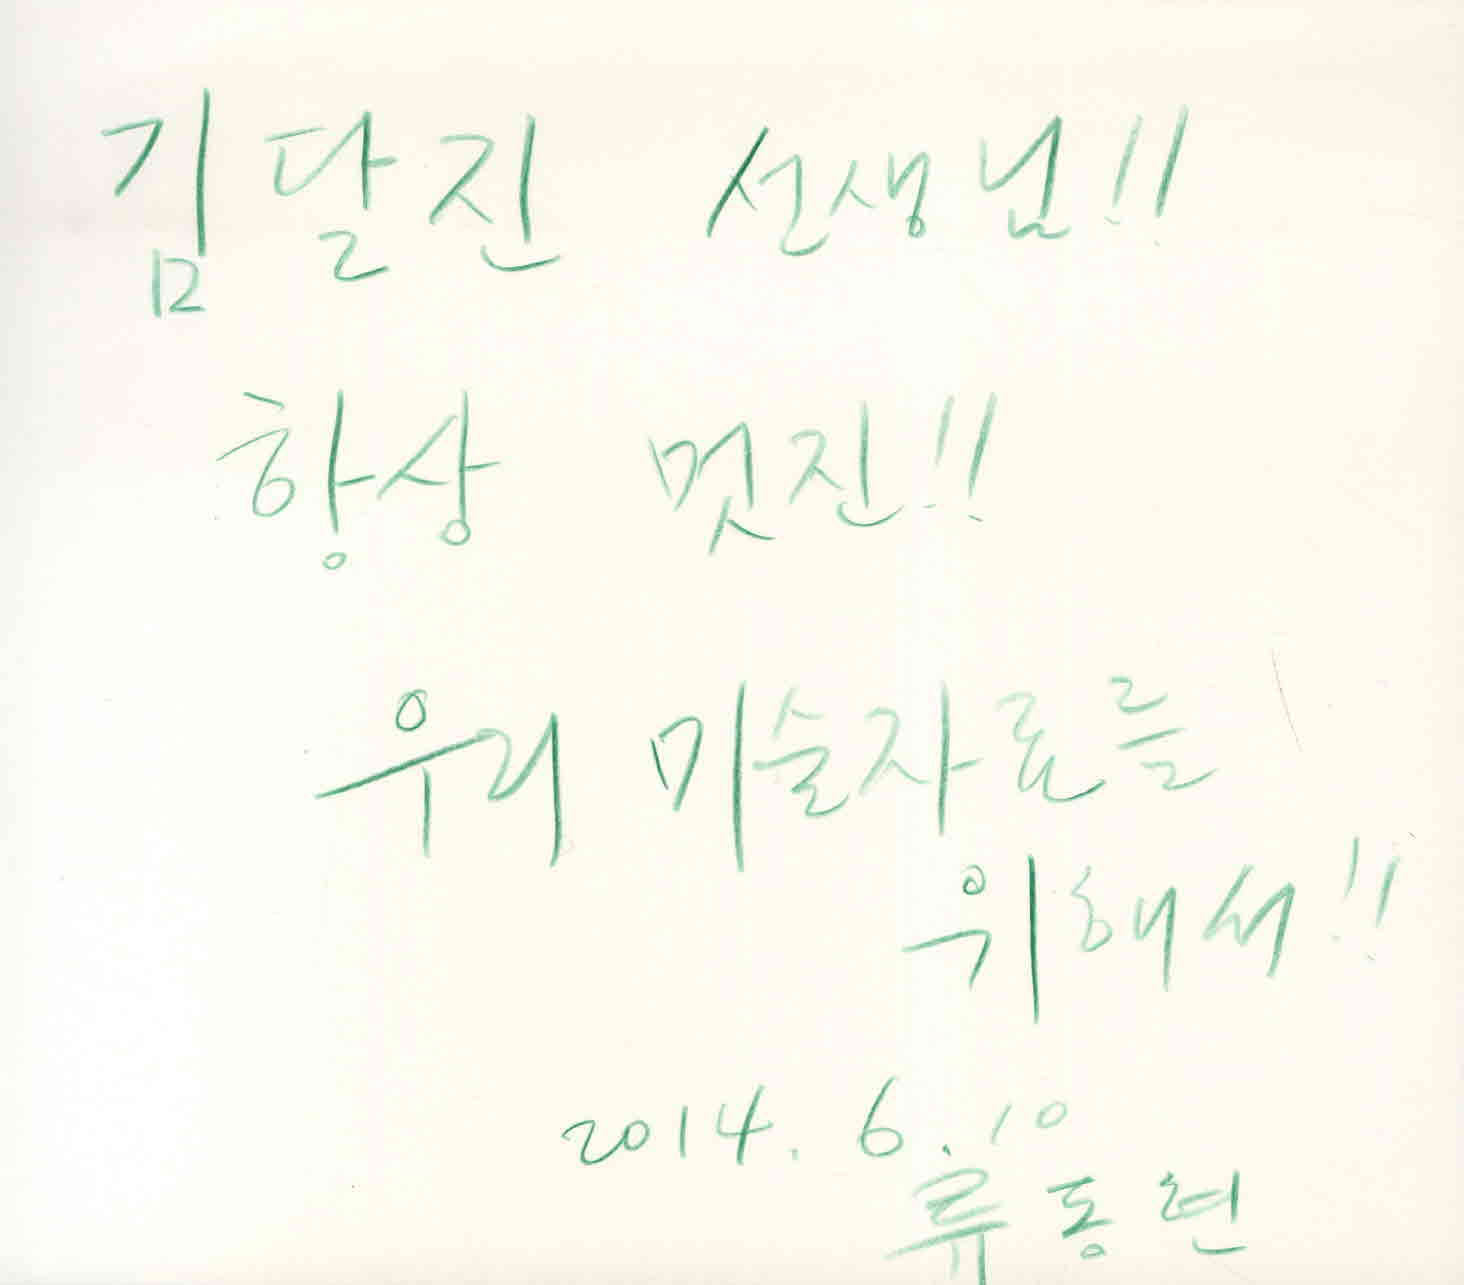 김달진 선생님!!
항상 멋진!!
우리 미술자료를
위해서!!
2014. 6. 10
류동현